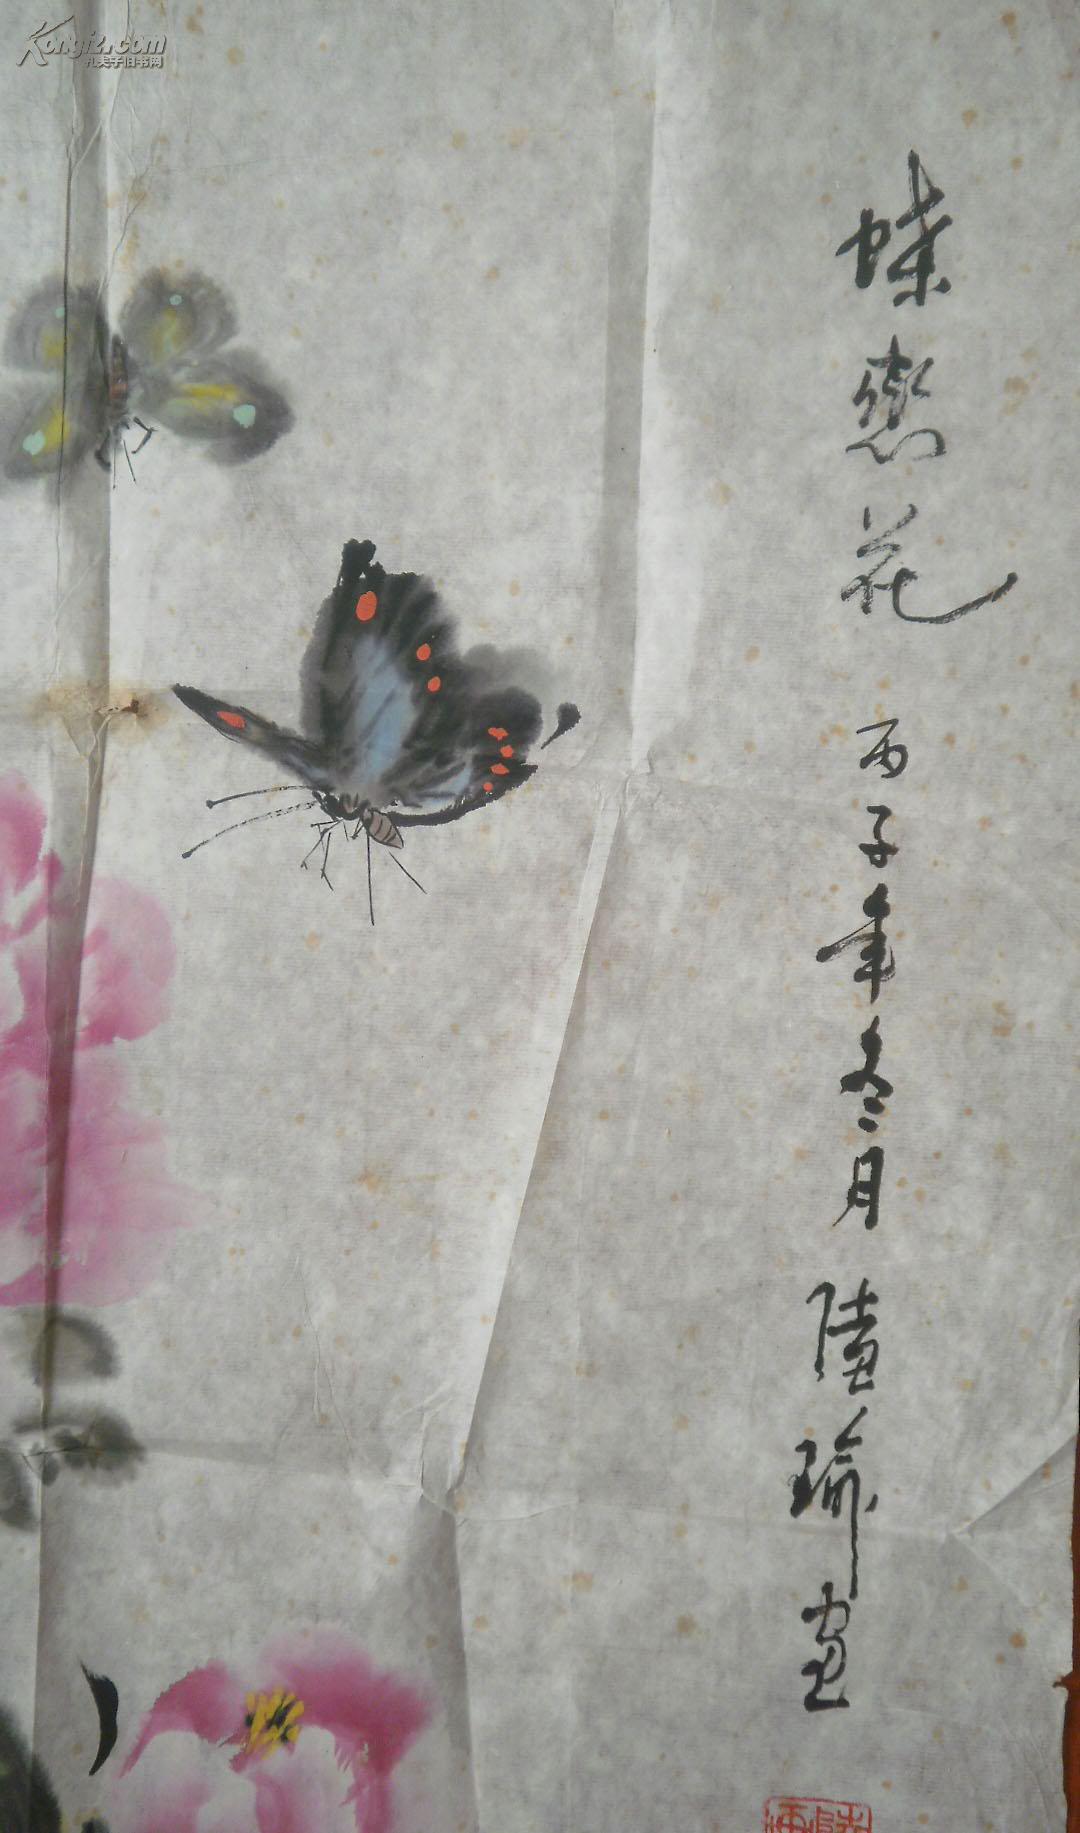 Kongfz.com
孔夫子旧书网
蝶戀花 丙子年冬月 陸瑜画